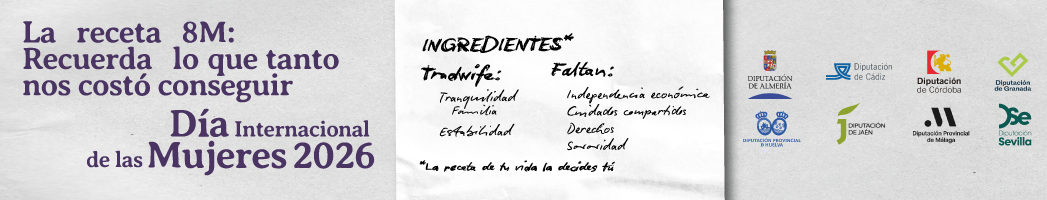 La receta 8M:
Recuerda lo que tanto
nos costó conseguir
Día Internacional
de las Mujeres 2026
INGREDIENTES*
Tradwife:
Tranquilidad
Familia
Estabilidad
Faltan:
Independencia económica
Cuidados compartidos
Derechos
Sororidad
*La receta de tu vida la decides tú
DIPUTACIÓN
DE ALMERÍA
Diputación
de Cádiz
Diputación
de Córdoba
Diputación
de Granada
DIPUTACIÓN PROVINCIAL
D HUELVA
DIPUTACIÓN
DE JAÉN
Diputación Provincial
de Málaga
Diputación
Sevilla